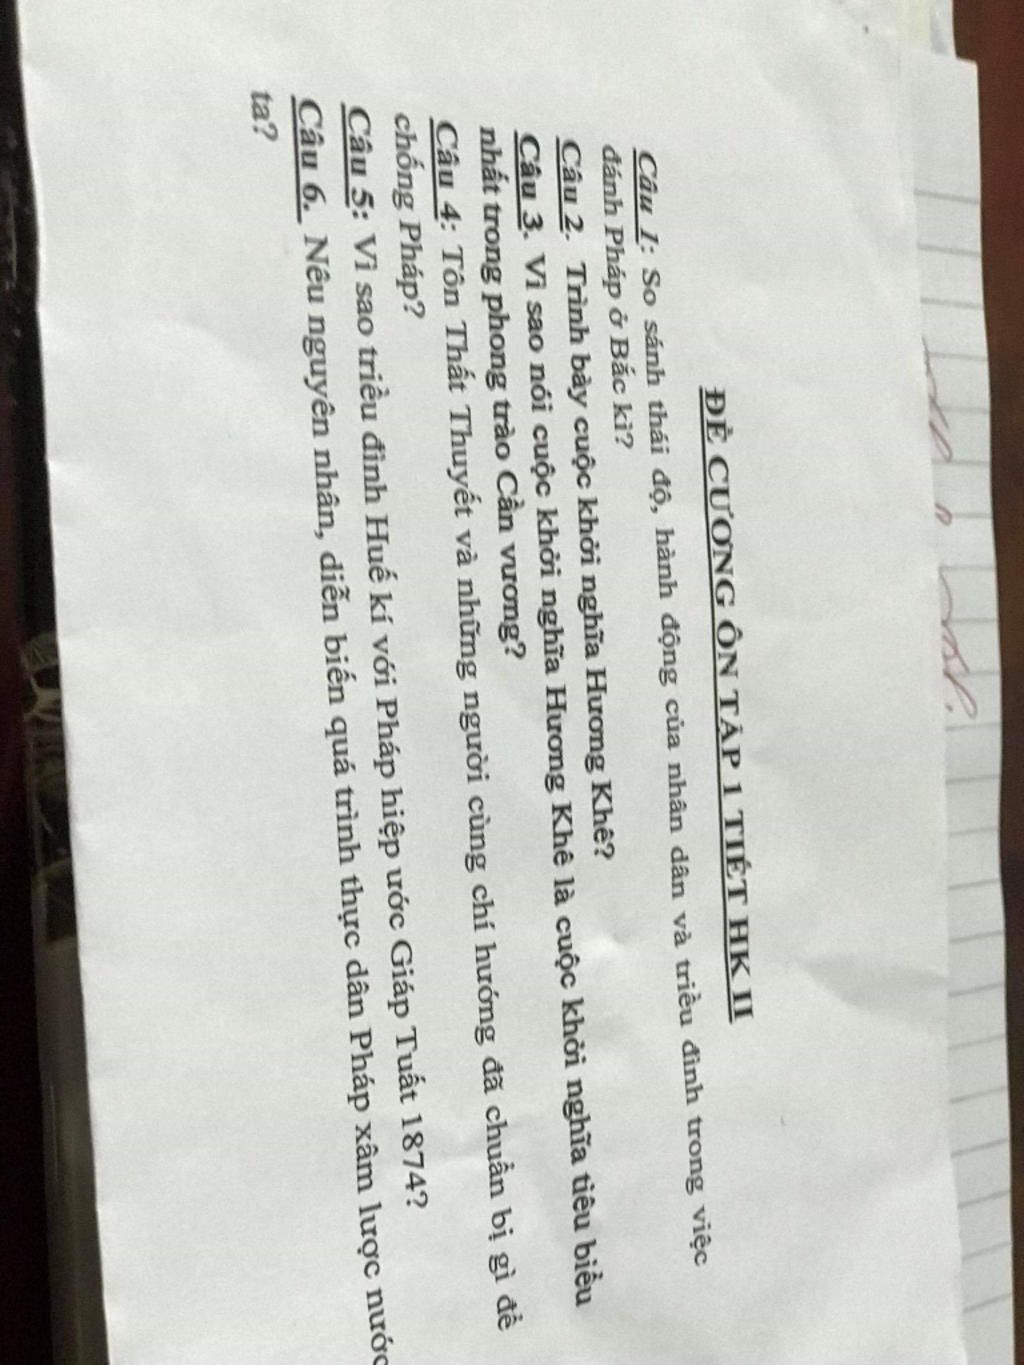 ĐỀ CƯƠNG ÔN TẬP 1 TIẾT HK II
Câu 1: So sánh thái độ, hành động của nhân dân và triều đình trong việc
đánh Pháp ở Bắc kì?
Câu 2. Trình bày cuộc khởi nghĩa Hương Khê?
Câu 3. Vì sao nói cuộc khởi nghĩa Hương Khê là cuộc khởi nghĩa tiêu biểu
nhất trong phong trào Cần vương?
Câu 4: Tôn Thất Thuyết và những người cùng chí hướng đã chuẩn bị gì để
chống Pháp?
Câu 5: Vì sao triều đình Huế kí với Pháp hiệp ước Giáp Tuất 1874?
Câu 6. Nêu nguyên nhân, diễn biến quá trình thực dân Pháp xâm lược nước
ta?